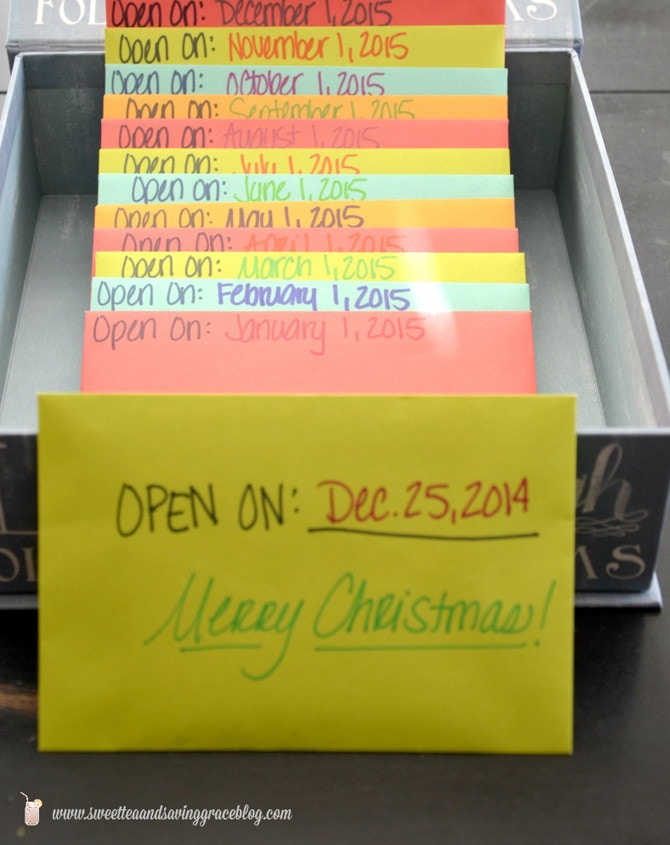 FOL MS
Open On: December 1, 2015
Open On: November 1, 2015
Open On: October 1, 2015
Open On: September 1, 2015
Open On: August 1, 2015
Open On: July 1, 2015
Open On: June 1, 2015
Open On: May 1, 2015
Open On: April 1, 2015
Open On: March 1, 2015
Open On: February 1, 2015
Open On: January 1, 2015
OPEN ON: Dec. 25, 2014
Merry Christmas!
gh
MS
www.sweetteaandsavinggraceblog.com